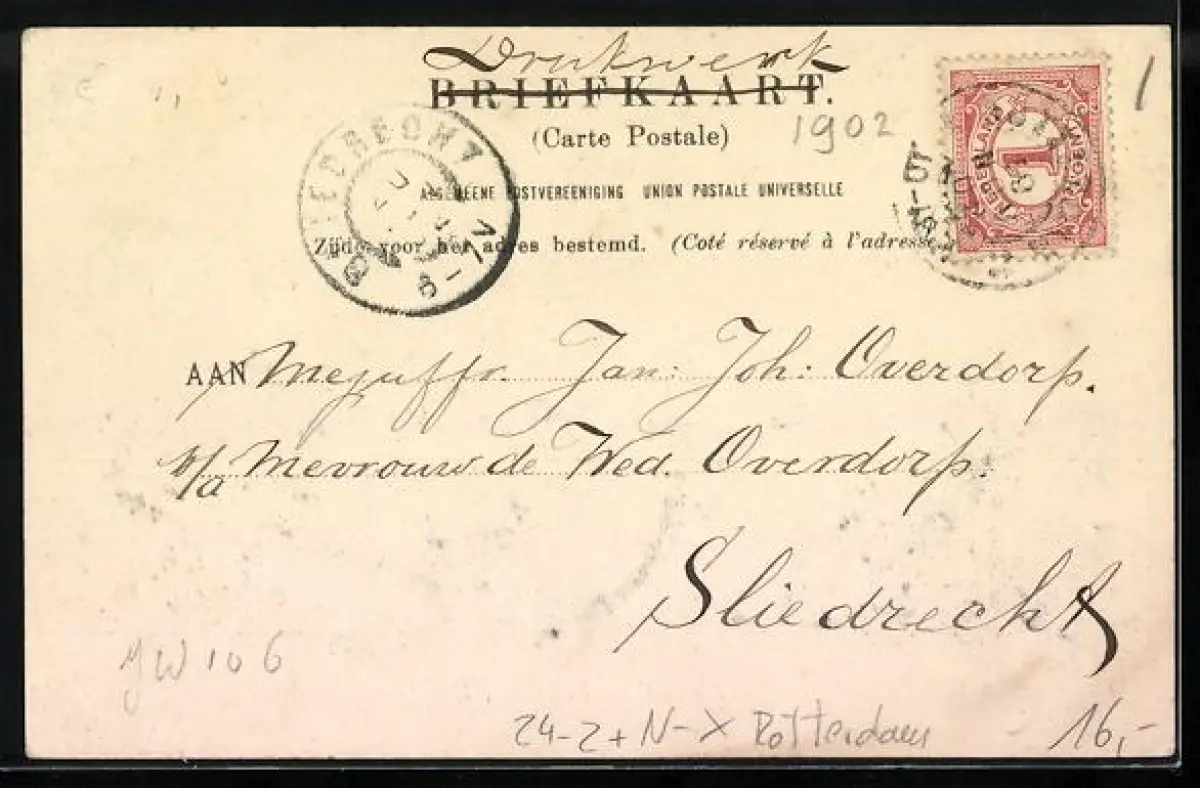 Drukwerk
BRIEFKAART.
(Carte Postale)
1902
ALGEMEENE POSTVEREENIGING UNION POSTALE UNIVERSELLE
Zijde voor het adres bestemd. (Coté réservé à l'adresse
NEDERLAND
1
6-7V
AAN Mejuffr. Jan: Joh: Overdorp.
p/a Mevrouw de Wed. Overdorp.
Sliedrecht
16,-
24-2+ N-X Rotterdam